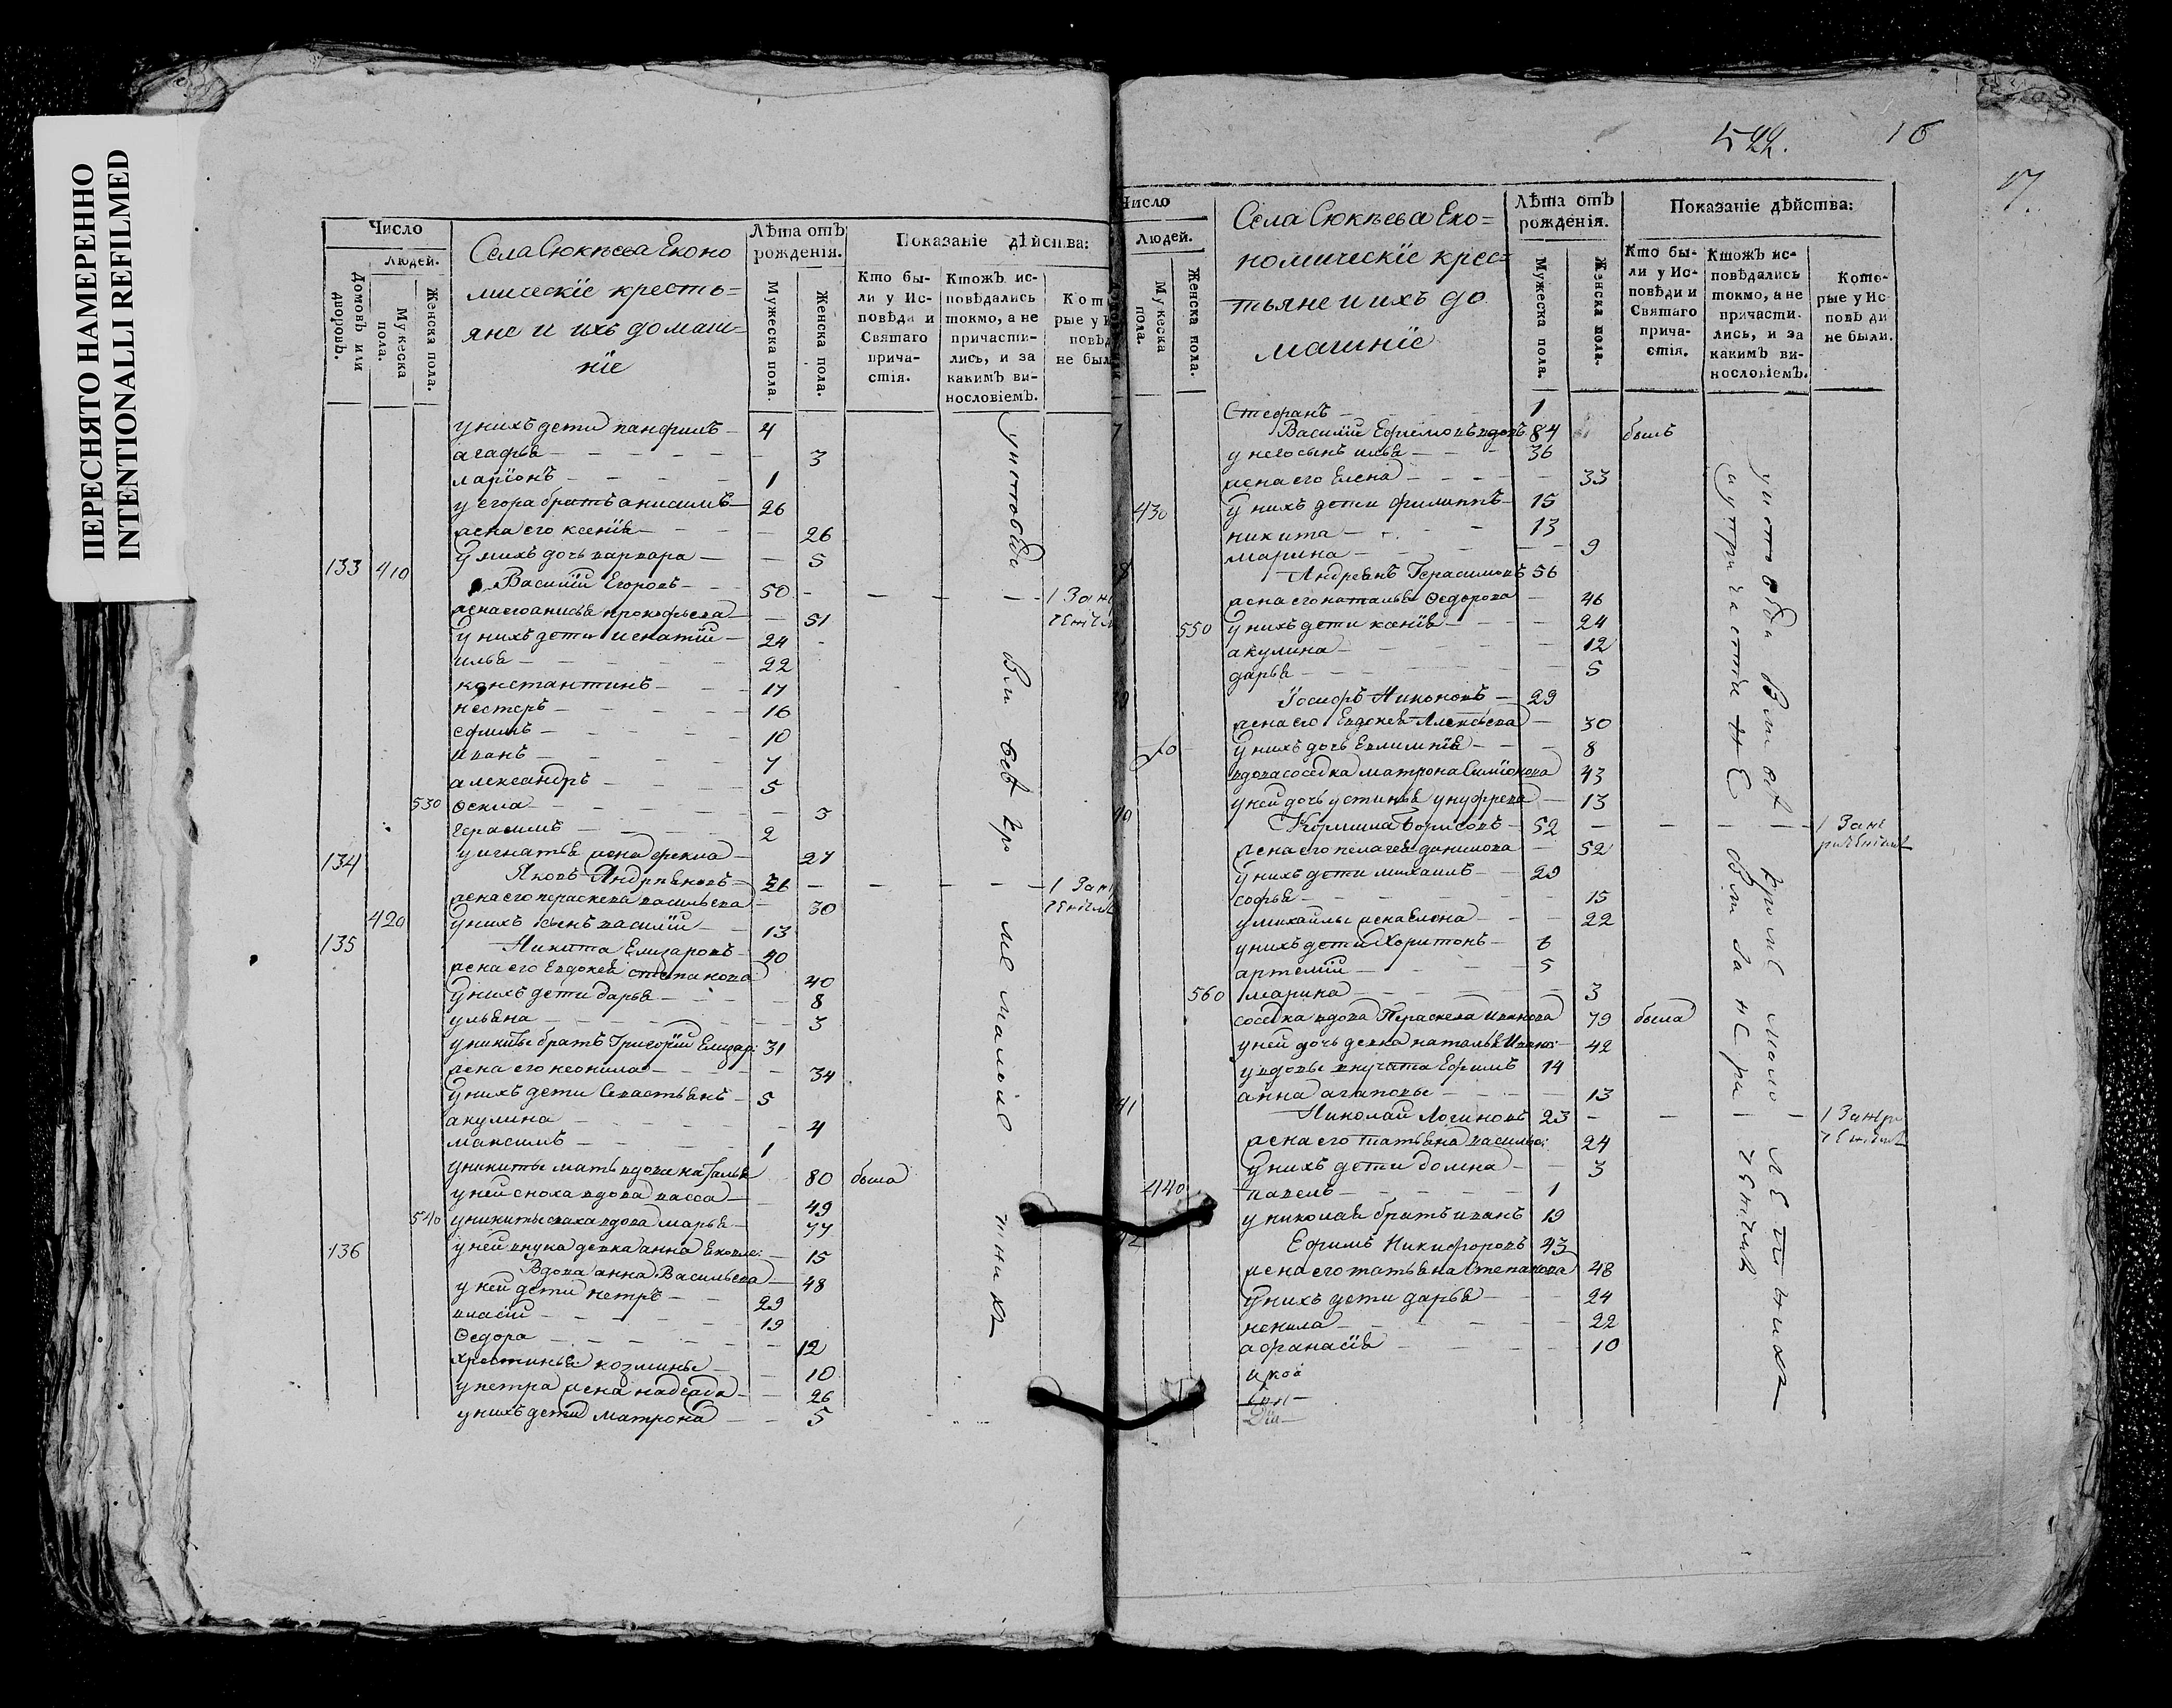 ПЕРЕСНЯТО НАМЕРЕННО
INTENTIONALLI REFILMED
Число
Людей.
Домовъ или дворовъ.
Мужеска пола.
Женска пола.
Села Сюкѣева Еконо
мическїе кресть=
яне и ихъ домаш=
нїе
Лѣта отъ рожденія.
Мужеска пола.
Женска пола.
Показаніе дѣйства:
Кто бы-
ли у Ис-
повѣди и
Святаго
прича-
стія.
Ктожъ ис-
повѣдались
токмо, а не
причасти-
лись, и за
какимъ ви-
нословіемъ.
Кот
рые у И
повѣд
не был
у нихъ дети панфилъ 4
агафья 3
ларїонъ 1
у егора братъ анисимъ 26
жена его ксенїя 26
у нихъ дочь варвара 5
133 410 Василїи Егоровъ 50 1 Зан
жена его анисья прокофьева 51
у нихъ дети игнатїи 24
илья 22
константинъ 17
нестеръ 16
ефимъ 10
иванъ 7
александръ 5
530 Ѳекла 3
герасимъ 2
у игнатья жена фекла 27
134 Яковъ Андреяновъ 36 1 Зан
жена его параскева васильева 30
420 у нихъ сынъ василїи 13
135 Никита Елизаровъ 40
жена его Евдокея степанова 40
у нихъ дети дарья 8
ульяна 3
у никиты братъ Григорїи Елизар: 31
жена его неонила 34
у нихъ дети Севастьянъ 5
акулина 4
максимъ 1
у никиты мать вдова наталья 80 была
у ней сноха вдова васса 49
540 у никиты сноха вдова марья 77
у ней внука девка анна 15
136 Вдова анна Васильева 48
у ней дети петръ 29
власїи 19
Ѳедора 12
христинья козмины 10
у петра жена надежда 26
у нихъ дети матрона 5
у исповѣди вси всѣ кроме малолетника
522. 16
17
Число
Людей.
Мужеска пола.
Женска пола.
Села Сюкѣева Еко=
номическїе крес=
тьяне и ихъ до
машнїе
Лѣта отъ рожденія.
Мужеска пола.
Женска пола.
Показаніе дѣйства:
Кто бы-
ли у Ис-
повѣди и
Святаго
прича-
стія.
Ктожъ ис-
повѣдались
токмо, а не
причасти-
лись, и за
какимъ ви-
нословіемъ.
Кото-
рые у Ис
повѣди
не были.
Стефанъ 1
7 Василїи Ефимовъ вдовъ 84 былъ
у него сынъ илья 36
жена его Елена 33
430 у нихъ дети филиппъ 15
никита 13
марина 9
8 Андреянъ Герасимовъ 56
жена его наталья Ѳедорова 46
550 у нихъ дети ксенїя 24
акулина 12
дарья 5
Їосифъ Никоновъ 29
жена его Евдокея Алексѣева 30
у нихъ дочь Евлампїя 8
вдова соседка матрона Симїонова 43
у ней дочь устинья унуфрева 13
Кормила Борисовъ 52 1 Зане
жена его пелагея данилова 52
у нихъ дети михаилъ 29
софья 15
у михайлы жена Елена 22
у нихъ дети Харитонъ 6
артемїи 5
560 марина 3
соседка вдова Параскева иванова 79 была
у ней дочь девка наталья Ивано: 42
у вдовы внучата Ефимъ 14
анна агаповы 13
Николаи Логиновъ 23
жена его татьяна василье: 24
у нихъ дети домна 3
440 павелъ 1
у николая братъ иванъ 19
Ефимъ Никифоровъ 43
жена его татьяна Степанова 48
у нихъ дети дарья 24
ненила 22
афанасїя 10